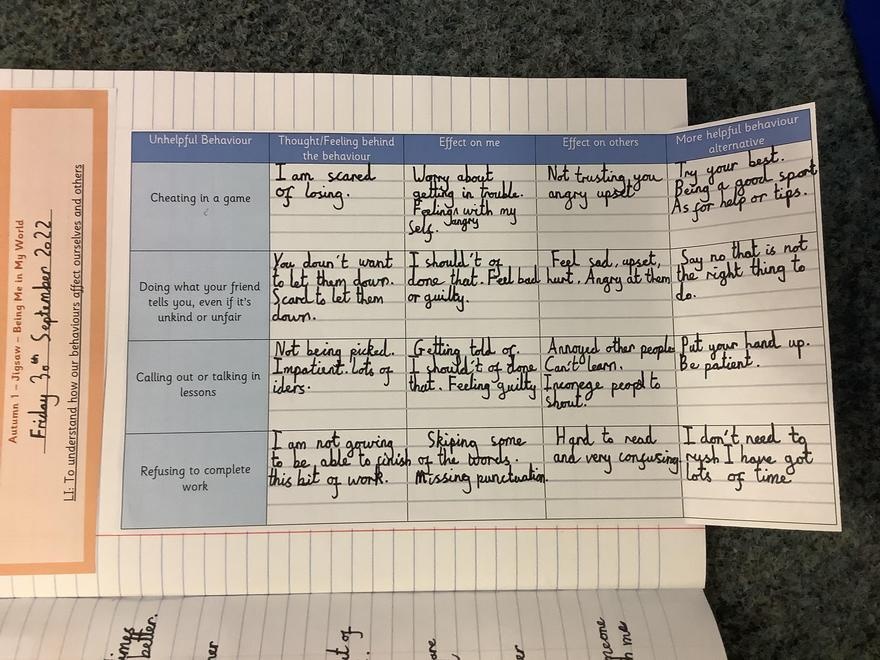 Autumn 1 – Jigsaw – Being Me in My World
Friday 30th September 2022
LI: To understand how our behaviours affect ourselves and others
Unhelpful Behaviour
Thought/Feeling behind
the behaviour
Effect on me
Effect on others
More helpful behaviour
alternative
Cheating in a game
I am scared
of losing.
Worry about
getting in trouble.
Feelings with my
self. angry
Not trusting you
angry upset
Try your best.
Being a good sport
As for help or tips.
Doing what your friend
tells you, even if it's
unkind or unfair
You doun't want
to let them down.
Scard to let them
down.
I should't of
done that. Feel bad
or guilty.
Feel sad, upset,
hurt, Angry at them
Say no that is not
the right thing to
do.
Calling out or talking in
lessons
Not being picked.
Impatient. lots of
iders.
Getting told of.
I should't of done
that. Feeling guilty
Annoyed other people
Can't learn.
Incorege peopl to
shout.
Put your hand up.
Be patient.
Refusing to complete
work
I am not gowing
to be able to finish
this bit of work.
Skiping some
of the words.
Missing punctuation.
Hard to read
and very confusing
I don't need to
rush I have got
lots of time
better.